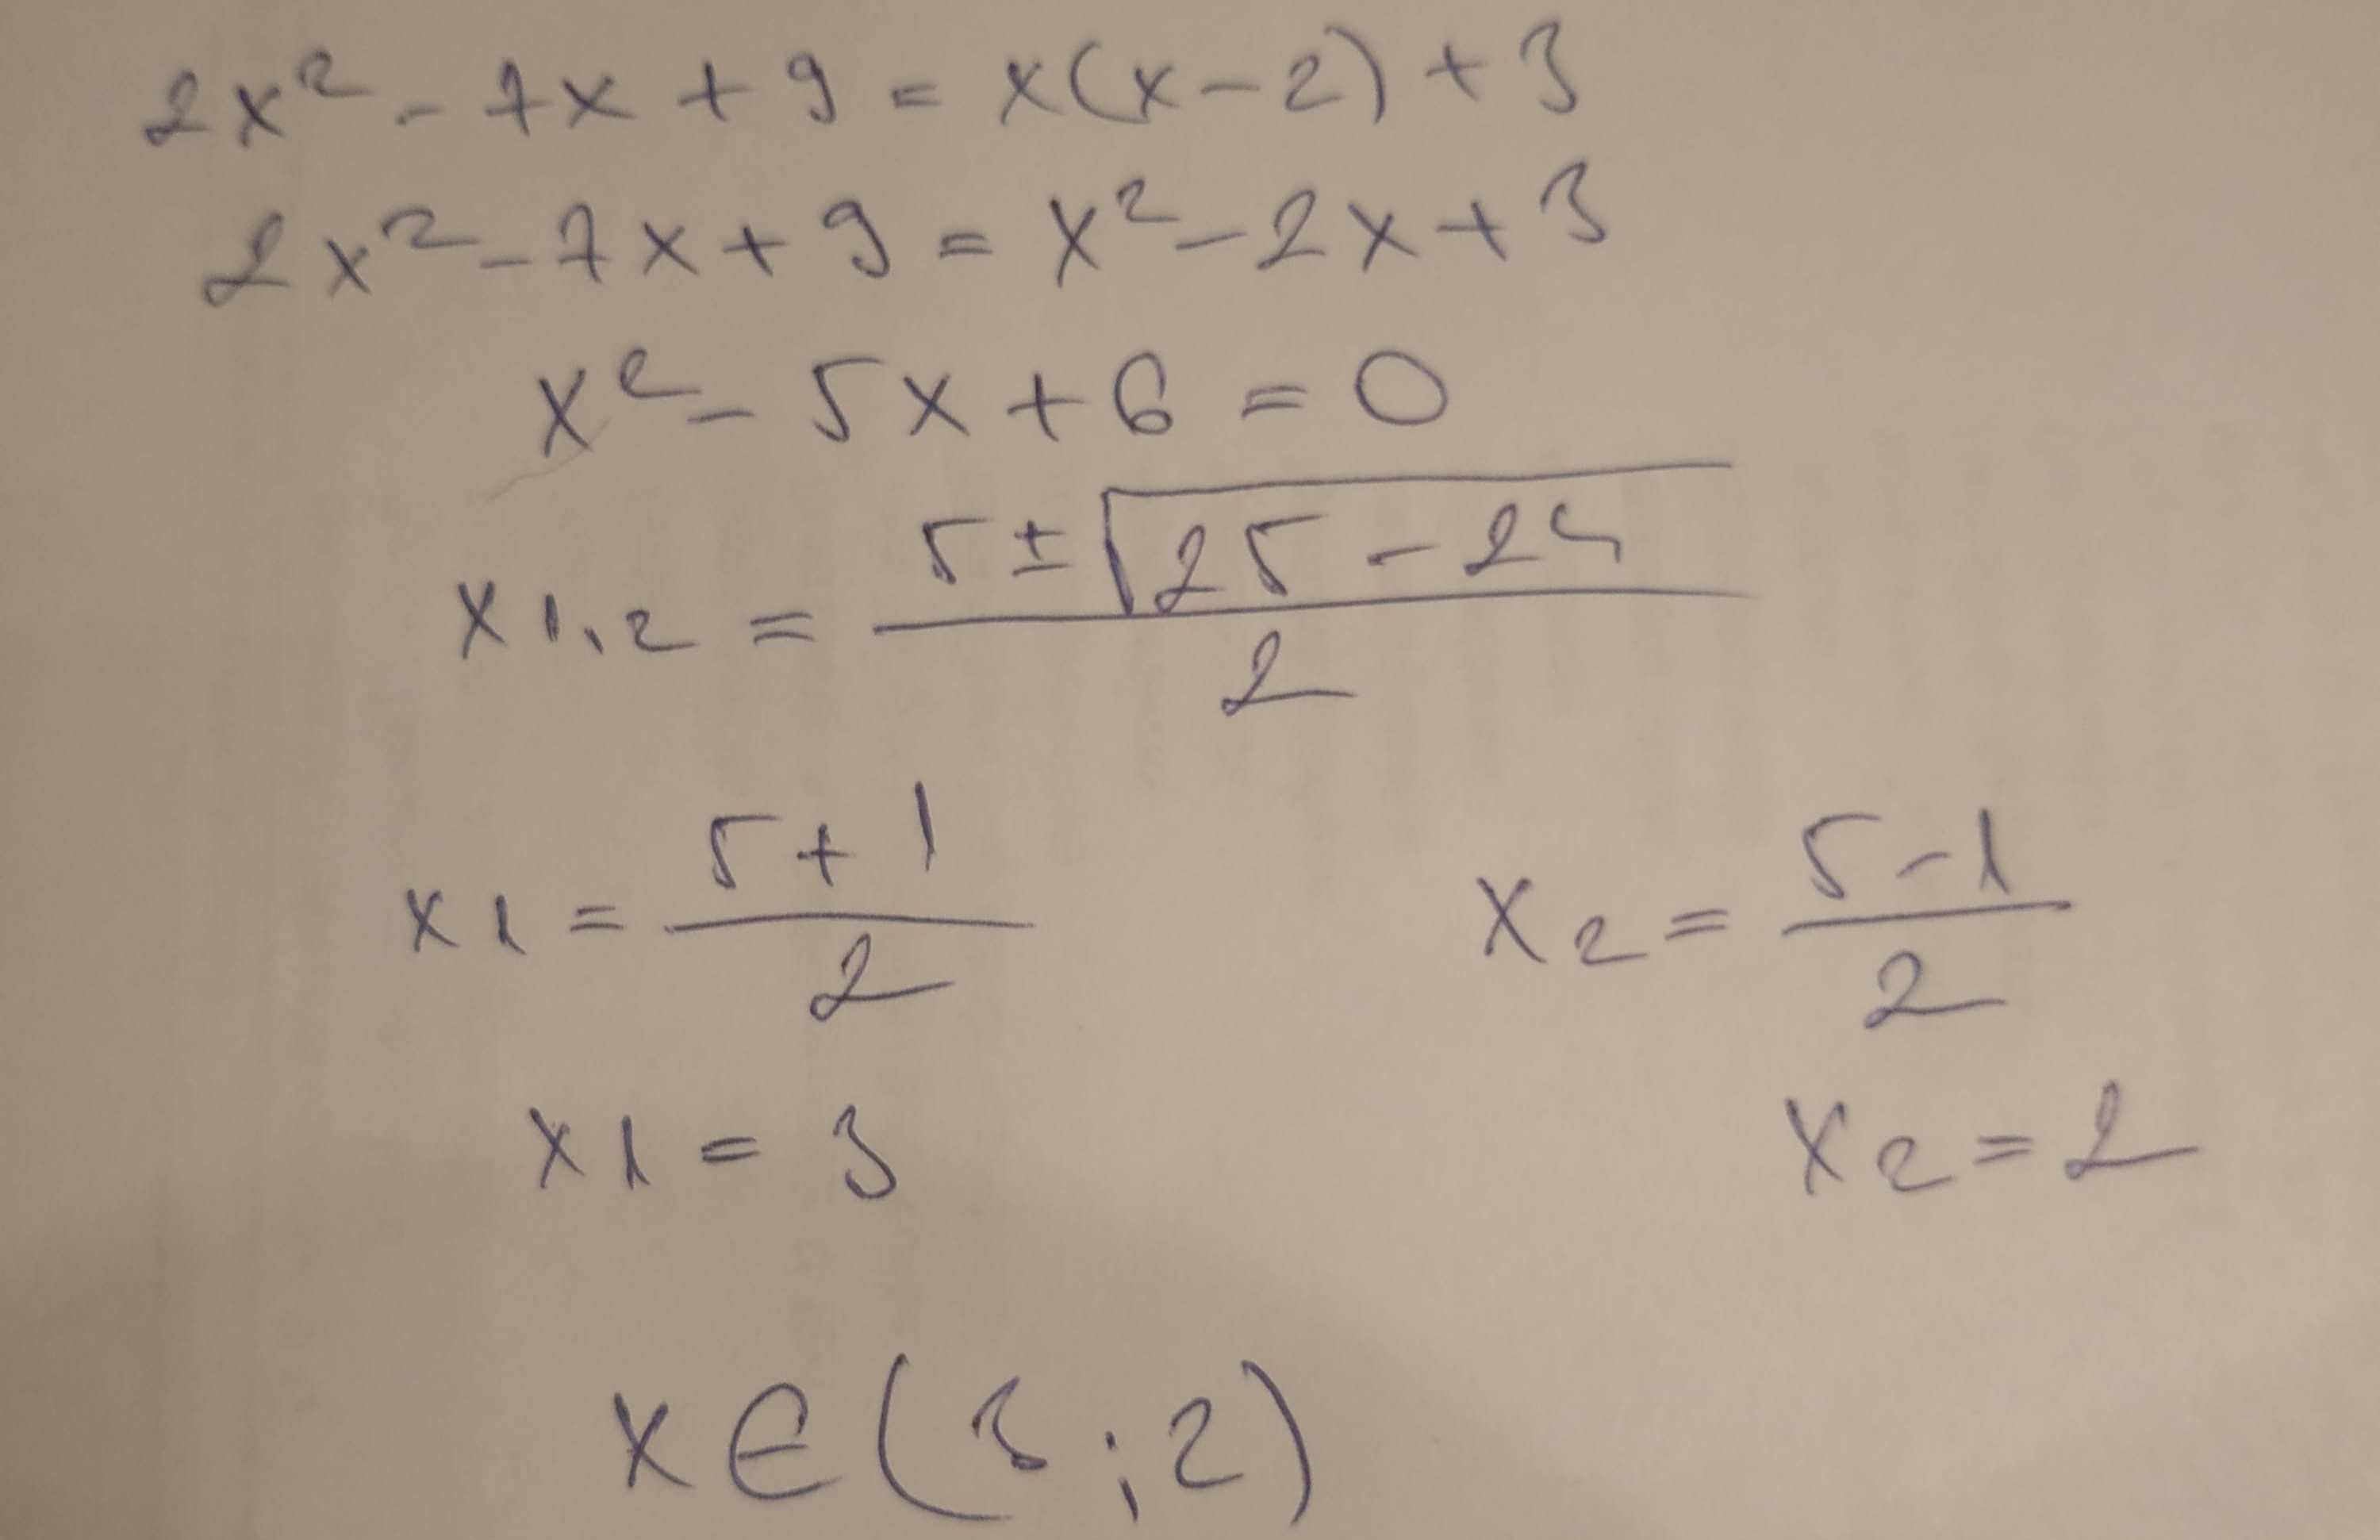 2x² - 7x + 9 = x(x - 2) + 3
2x² - 7x + 9 = x² - 2x + 3
x² - 5x + 6 = 0
x1,2 = (5 ± √(25 - 24)) / 2
x1 = (5 + 1) / 2    x2 = (5 - 1) / 2
x1 = 3    x2 = 2
x ∈ (3 ; 2)